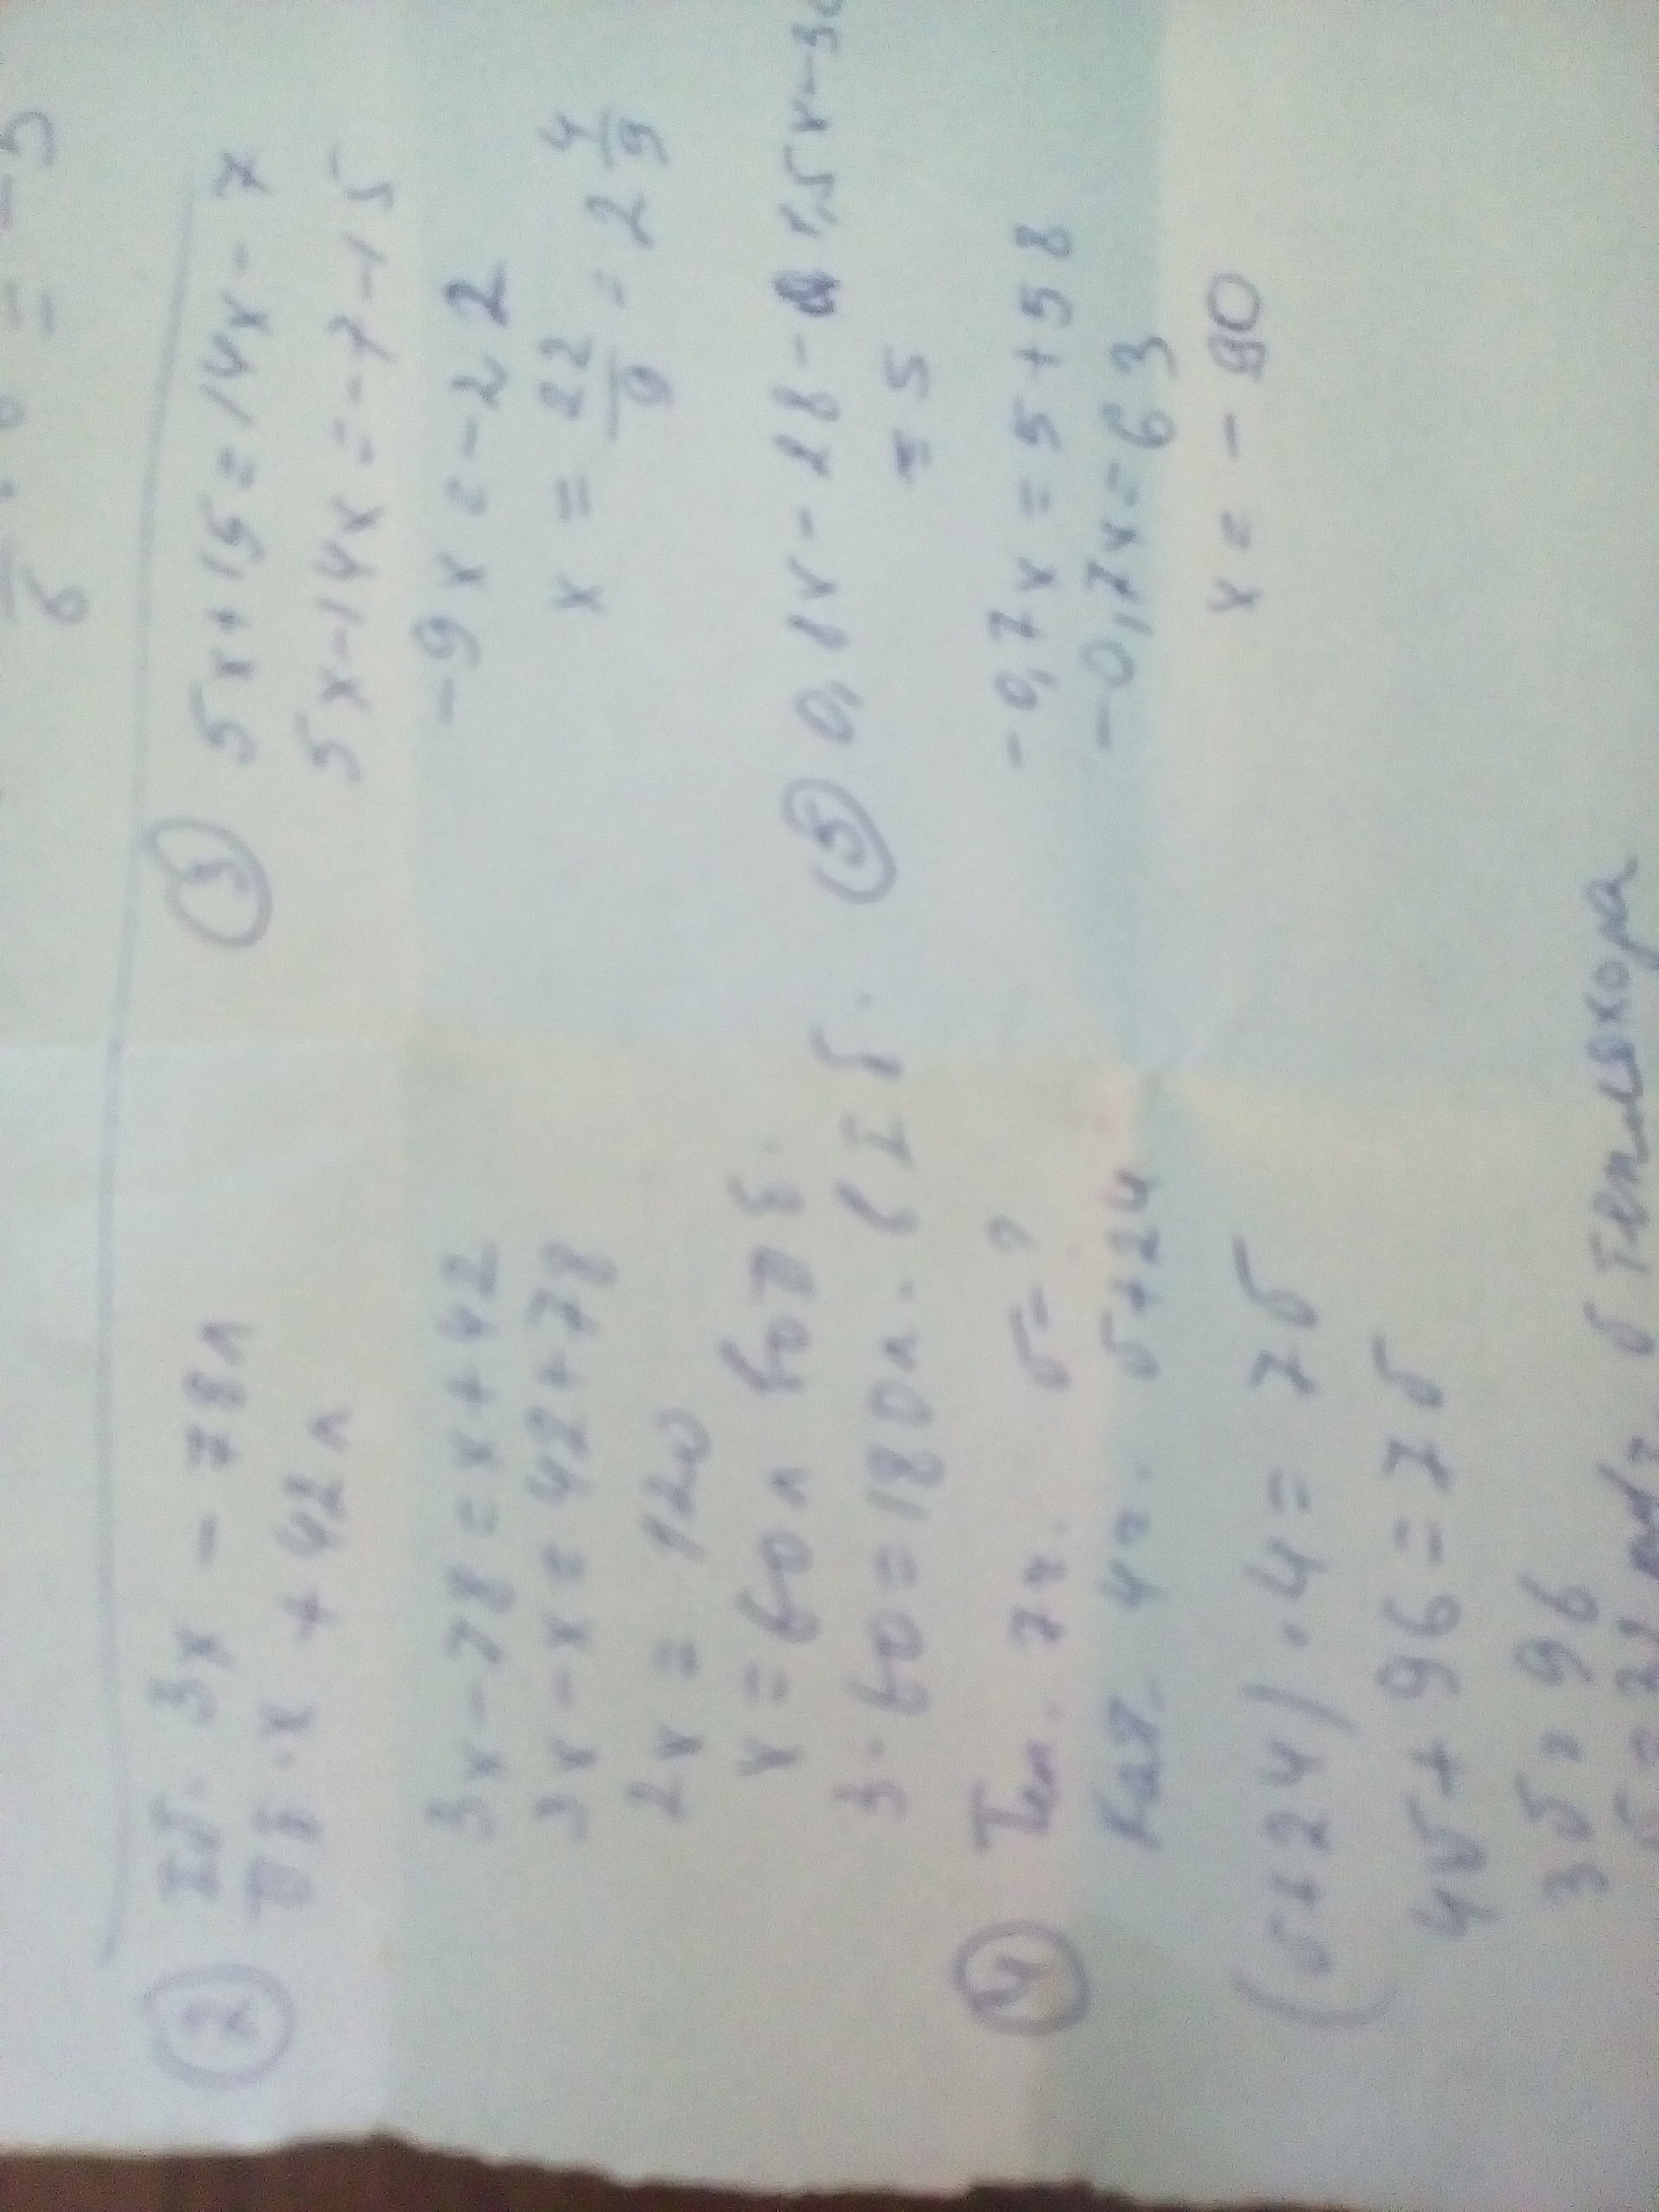 6 = -5
② I б. 3x - 78 л
II б. x + 42 л
3x - 78 = x + 42
3x - x = 42 + 78
2x = 120
x = 60 л во II б.
3·60 = 180 л. в I б.
③ 5x + 15 = 14x - 7
5x - 14x = -7 - 15
-9x = -22
x = 22/9 = 2 4/9
④ Теп. 7ч. б - ?
Кат. 4ч. б + 24
(б + 24)·4 = 7б
4б + 96 = 7б
3б = 96
б теплохора
⑤ 0,8x - 28 - 1,5x - 30
= 5
-0,7x = 5 + 58
-0,7x = 63
x = -90